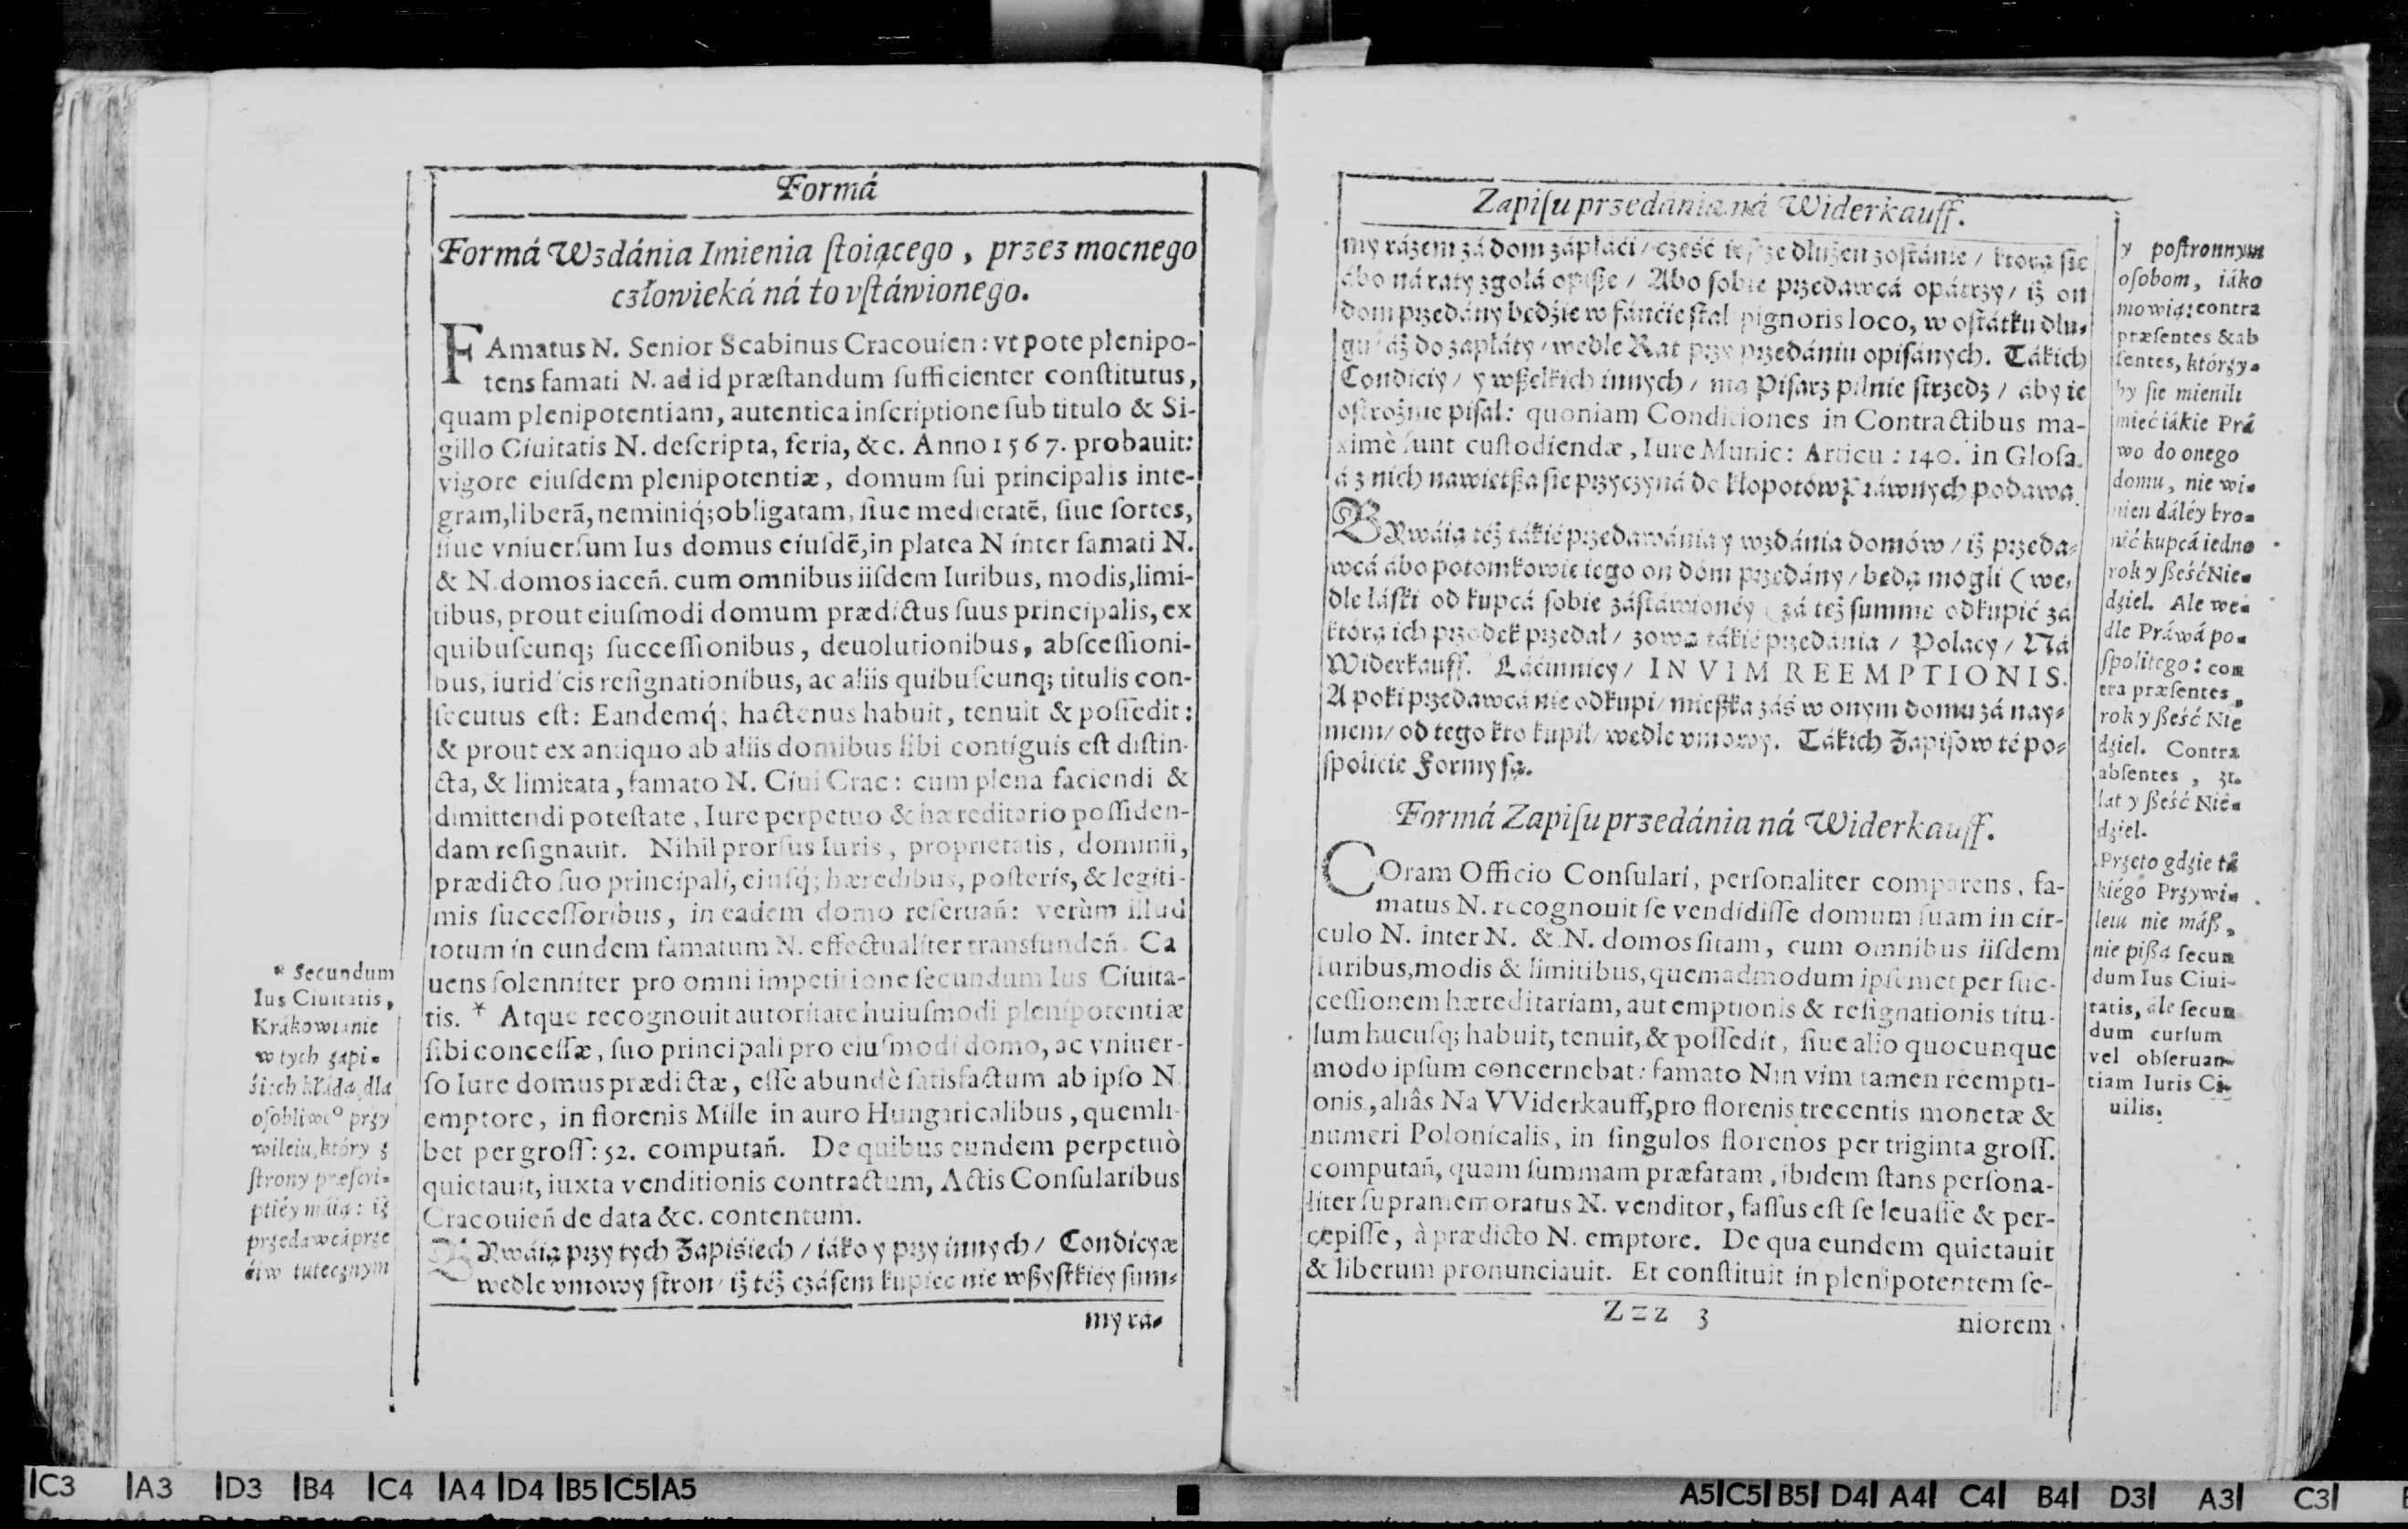 Formá
Formá Wzdánia Imienia ſtoiącego, przez mocnego
człowieká ná to vſtáwionego.
FAmatus N. Senior Scabinus Cracouien: vt pote plenipo-
tens famati N. ad id præſtandum ſufficienter conſtitutus,
quam plenipotentiam, autentica inſcriptione ſub titulo & Si-
gillo Ciuitatis N. deſcripta, feria, &c. Anno 1567. probauit:
vigore eiuſdem plenipotentiæ, domum ſui principalis inte-
gram, liberã, neminiq́; obligatam, ſiue medietatẽ, ſiue ſortes,
ſiue vniuerſum Ius domus eiuſdẽ, in platea N inter famati N.
& N. domos iaceñ. cum omnibus iiſdem Iuribus, modis, limi-
tibus, prout eiuſmodi domum prædictus ſuus principalis, ex
quibuſcunq; ſucceſſionibus, deuolutionibus, abſceſſioni-
bus, iuridicis reſignationibus, ac aliis quibuſcunq; titulis con-
ſecutus eſt: Eandemq́; hactenus habuit, tenuit & poſſedit:
& prout ex antiquo ab aliis domibus ſibi contiguis eſt diſtin-
cta, & limitata, famato N. Ciui Crac: cum plena faciendi &
dimittendi poteſtate, Iure perpetuo & hæreditario poſſiden-
dam reſignauit. Nihil prorſus Iuris, proprietatis, dominii,
prædicto ſuo principali, eiuſq́; hæredibus, poſteris, & legiti-
mis ſucceſſoribus, in eadem domo reſeruañ: verùm illud
totum in eundem famatum N. effectualiter transfundeñ. Ca
uens ſolenniter pro omni impetitione ſecundum Ius Ciuita-
tis. * Atque recognouit autoritate huiuſmodi plenipotentiæ
ſibi conceſſæ, ſuo principali pro eiuſmodi domo, ac vniuer-
ſo Iure domus prædictæ, eſſe abundè ſatisfactum ab ipſo N.
emptore, in florenis Mille in auro Hungaricalibus, quemli-
bet per groſſ: 52. computañ. De quibus eundem perpetuò
quietauit, iuxta venditionis contractum, Actis Conſularibus
Cracouieñ de data &c. contentum.
BYwáią przy tych Zapiśiech / iáko y przy innych / Condicyæ
wedle vmowy ſtron / iż też czáſem kupiec nie wßyſtkiéy ſum-
my rá-
* Secundum
Ius Ciuitatis,
Krákowianie
w tych zápi-
śiech kłádą, dla
oſobliwe° przy
wileiu, który z
ſtrony præſcri-
ptiéy máią: iż
przedawcá prze
ćiw tutecznym
Zapiſu przedánia ná Widerkauff.
my rázem zá dom zápłáći / cześć ieſzcze dłużen zoſtánie / ktorą ſie
ábo ná raty zgołá opiße / Abo ſobie przedawcá opátrzy / iż on
dom przedány będźie w fánćie ſtał pignoris loco, w oſtátku dłu-
gu / áż do zapłáty / wedle Rat przy przedániu opiſánych. Tákich
Condiciy / y wßelkich innych / ma Piſarz pilnie ſtrzedz / áby ie
oſtrożnie piſał: quoniam Condiciones in Contractibus ma-
ximè ſunt cuſtodiendæ, Iure Munic: Articu: 140. in Gloſa.
á z nich nawietßa ſie przyczyná do kłopotów Práwnych podawa.
BYwáią też tákié przedawánia y wzdánia domów / iż przeda-
wcá ábo potomkowie iego on dóm przedány / będą mógli (we-
dle łáſki od kupcá ſobie záſtáwionéy) zá też ſumme odkupić zá
którą ich przodek przedał / zową tákié przedánia / Polacy / Ná
Widerkauff. Láćinnicy / IN VIM REEMPTIONIS.
A poki przedawcá nie odkupi / mießka záś w onym domu zá nay-
mem / od tego kto kupił / wedle vmowy. Tákich Zapiſow té po-
ſpolicie Formy ſą.
Formá Zapiſu przedánia ná Widerkauff.
COram Officio Conſulari, perſonaliter comparens, fa-
matus N. recognouit ſe vendidiſſe domum ſuam in cir-
culo N. inter N. & N. domos ſitam, cum omnibus iiſdem
Iuribus, modis & limitibus, quemadmodum ipſemet per ſuc-
ceſſionem hæreditariam, aut emptionis & reſignationis titu-
lum hucuſq; habuit, tenuit, & poſſedit, ſiue alio quocunque
modo ipſum concernebat: famato N in vim tamen reempti-
onis, aliâs Na VViderkauff, pro florenis trecentis monetæ &
numeri Polonicalis, in ſingulos florenos per triginta groſſ.
computañ, quam ſummam præfatam, ibidem ſtans perſona-
liter ſupramemoratus N. venditor, faſſus eſt ſe leuaſſe & per-
cepiſſe, à prædicto N. emptore. De qua eundem quietauit
& liberum pronunciauit. Et conſtituit in plenipotentem ſe-
Zzz 3
niorem
y poſtronnym
oſobom, iáko
mowią: contra
præſentes & ab
ſentes, którzy-
by ſie mienili
mieć iákie Prá
wo do onego
domu, nie wi-
nien dáléy bro-
nić kupcá iedno
rok y ßeść Nie-
dziel. Ale we-
dle Práwá po-
ſpolitego: con
tra præſentes,
rok y ßeść Nie
dziel. Contra
abſentes, 31.
lat y ßeść Nie-
dziel.
Przeto gdzie tá
kiégo Przywi-
leiu nie máß,
nie pißą ſecun
dum Ius Ciui-
tatis, ále ſecun
dum curſum
vel obſeruan-
tiam Iuris Ci-
uilis.
C3 A3 D3 B4 C4 A4 D4 B5 C5 A5
A5 C5 B5 D4 A4 C4 B4 D3 A3 C3